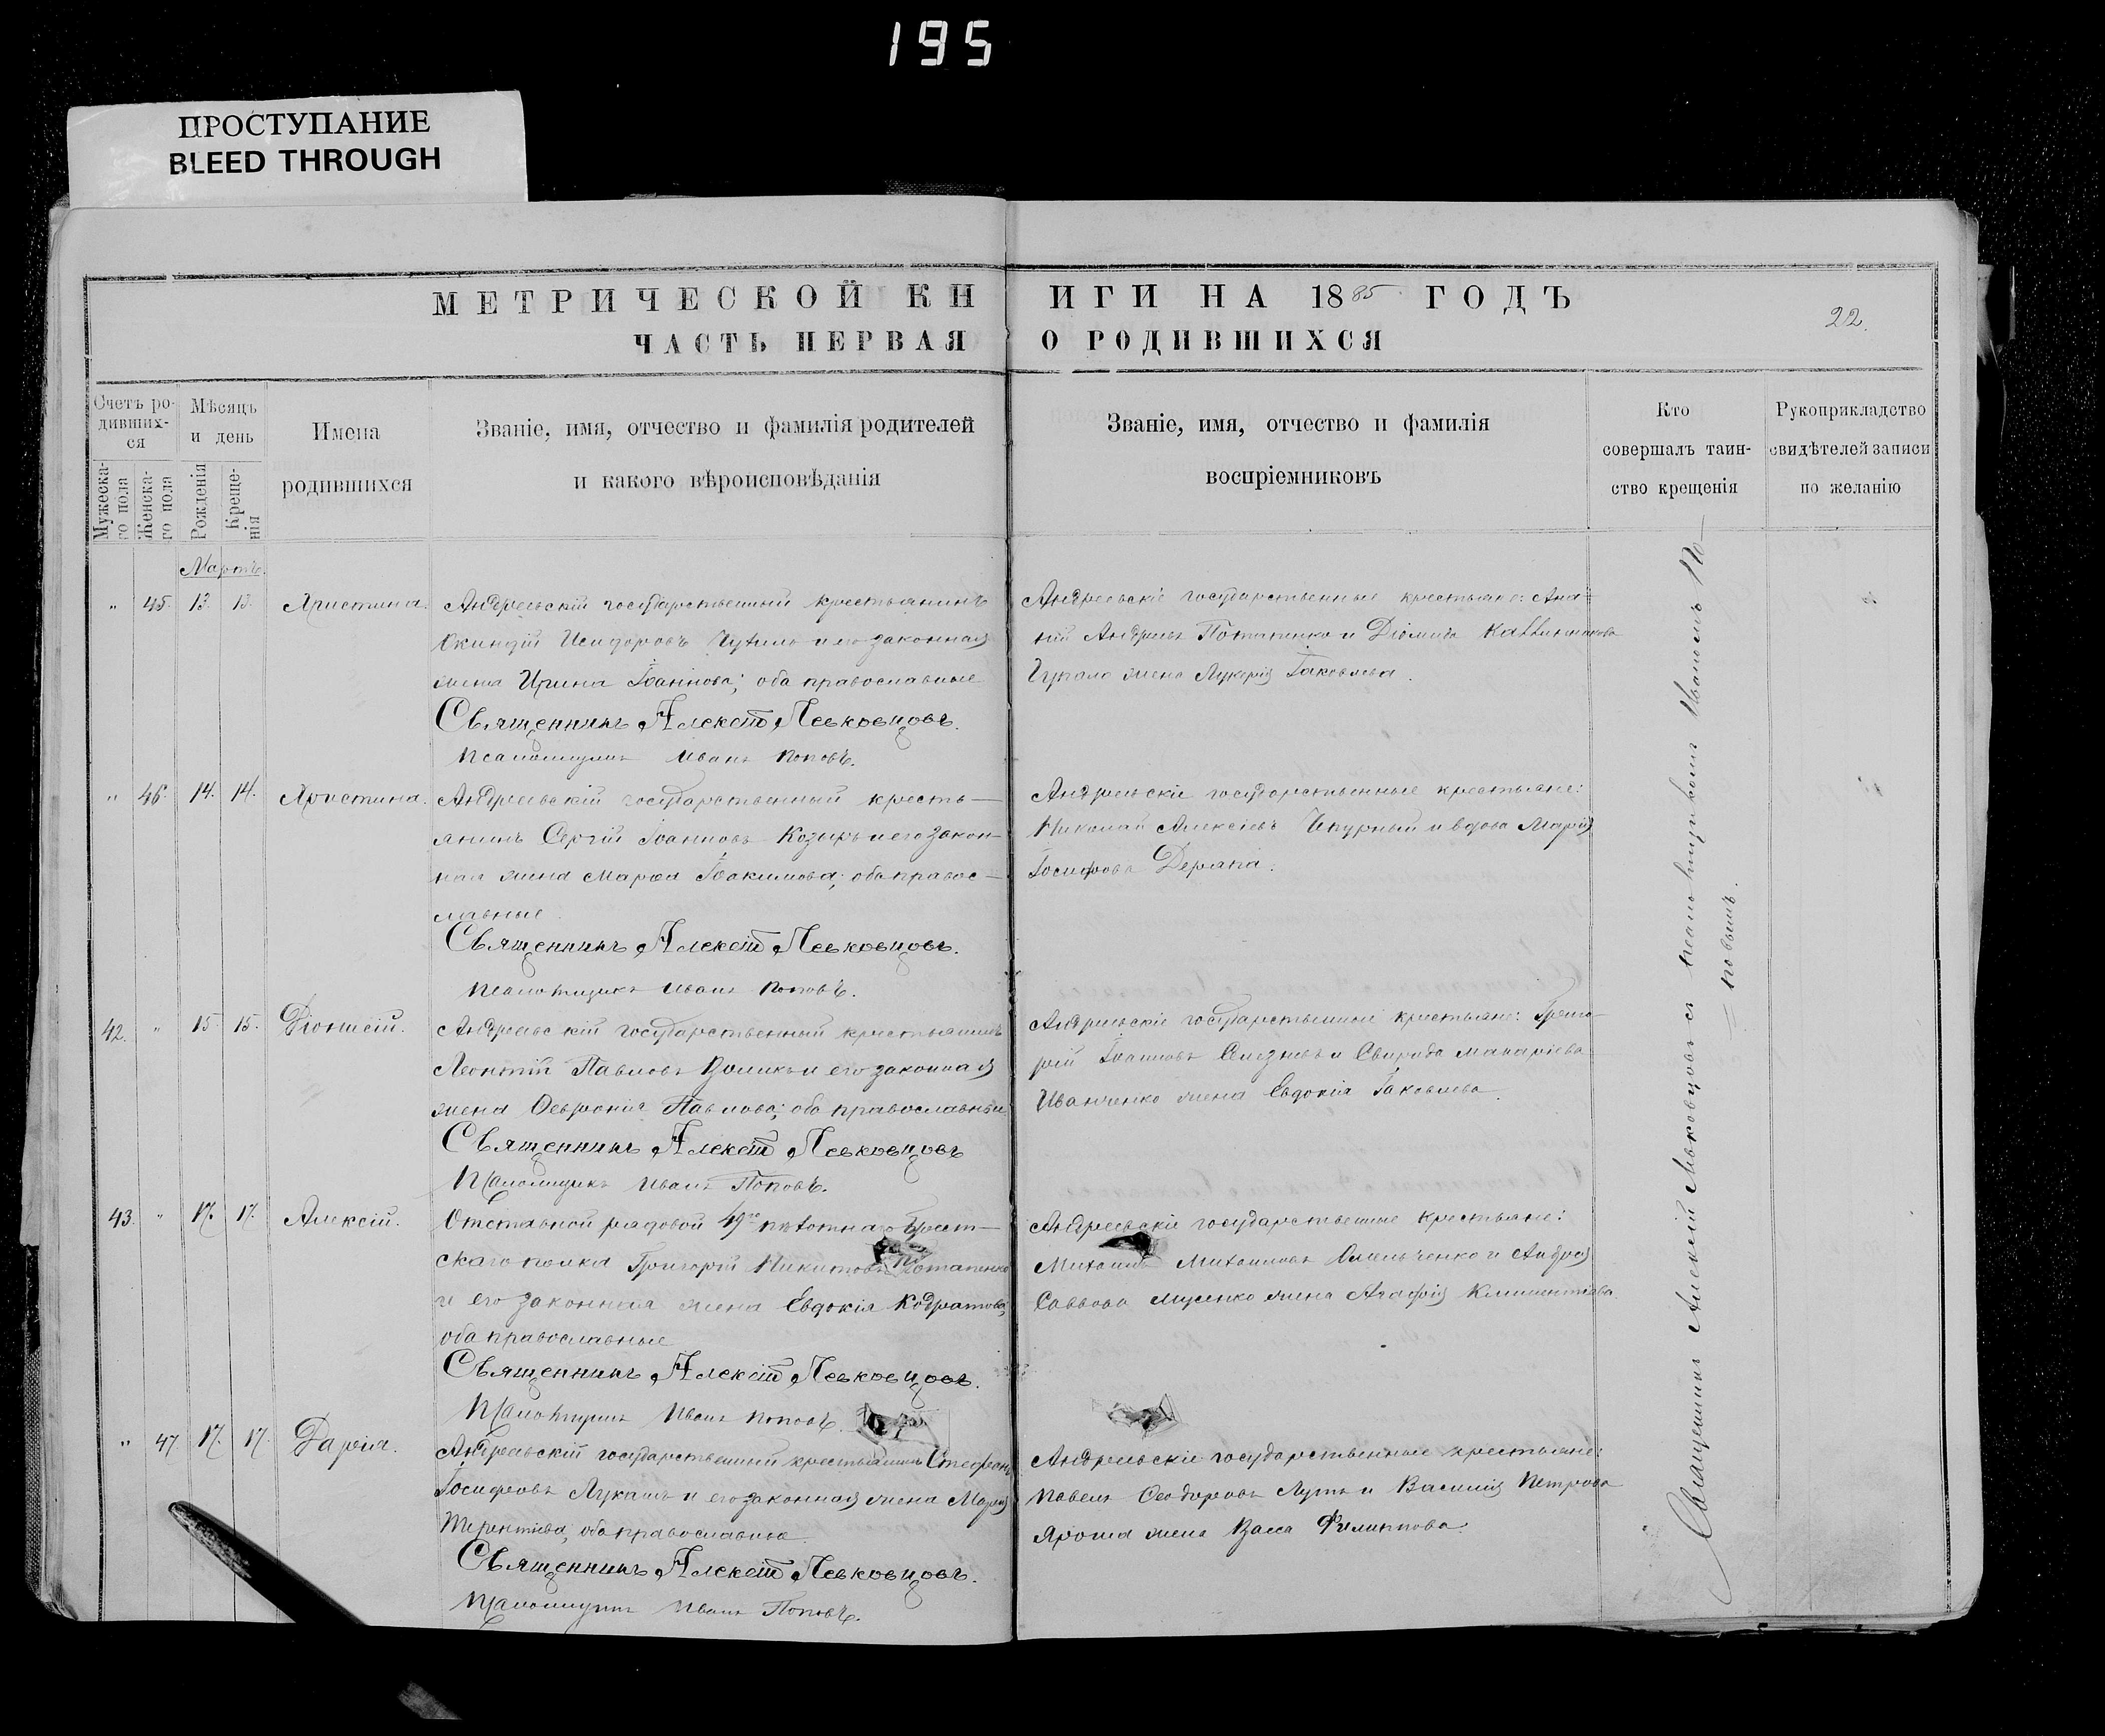 195
ПРОСТУПАНИЕ
BLEED THROUGH
МЕТРИЧЕСКОЙ КНИГИ НА 1885 ГОДЪ
22.
ЧАСТЬ ПЕРВАЯ О РОДИВШИХСЯ
Счетъ ро-
дивших-
ся
Мужеска-
го пола
Женска-
го пола
Мѣсяцъ
и день
Рожденія
Креще-
нія
Имена
родившихся
Званіе, имя, отчество и фамилія родителей
и какого вѣроисповѣданія
Званіе, имя, отчество и фамилія
воспріемниковъ
Кто
совершалъ таин-
ство крещенія
Рукоприкладство
свидѣтелей записи
по желанію
Мартъ.
" 45. 13. 13. Христина.
Андреевскій государственный крестьянинъ
Исидоровъ и его законная
жена Ирина Іоаннова; оба православные
Священникъ Алексій Левковцовъ.
Псаломщикъ Иванъ Поповъ.
Андреевскіе государственные крестьяне: Ана-
ній Андреевъ Потапенко и Діомида
жена Лукерія Іаковлева.
" 46. 14. 14. Христина.
Андреевскій государственный кресть-
янинъ Сергій Іоанновъ Козырь и его закон-
ная жена Марѳа Іоакимова; оба правос-
лавные
Священникъ Алексій Левковцовъ.
Псаломщикъ Иванъ Поповъ.
Андреевскіе государственные крестьяне:
Николай Алексіевъ и вдова Марія
Іосифова
42. " 15. 15. Діонисій.
Андреевскій государственный крестьянинъ
Леонтій Павловъ и его законная
жена Павлова; оба православные
Священникъ Алексій Левковцовъ
Псаломщикъ Иванъ Поповъ.
Андреевскіе государственные крестьяне: Григо-
рій Іоанновъ Селезневъ и Свирида Макаріева
Иванченко жена Евдокія Іаковлева.
43. " 17. 17. Алексій.
Отставной рядовой 49го пѣхотнаго Брест-
скаго полка Григорій Никитовъ Потапенко
и его законная жена Евдокія Кодратова;
оба православные
Священникъ Алексій Левковцовъ.
Псаломщикъ Иванъ Поповъ.
Андреевскіе государственные крестьяне:
Михаилъ Михаиловъ Омельченко и Андрея
Саввова жена Агафія Климентіева.
" 47. 17. 17. Дарія.
Андреевскій государственный крестьянинъ Стефанъ
Іосифовъ Лукашъ и его законная жена Марія
Терентіева; оба православные
Священникъ Алексій Левковцовъ.
Псаломщикъ Иванъ Поповъ.
Андреевскіе государственные крестьяне:
Павелъ Ѳеодоровъ и Василія Петрова
жена Васса Филиппова.
Священникъ Алексій Левковцовъ съ псаломщикомъ Иваномъ По-
повымъ.